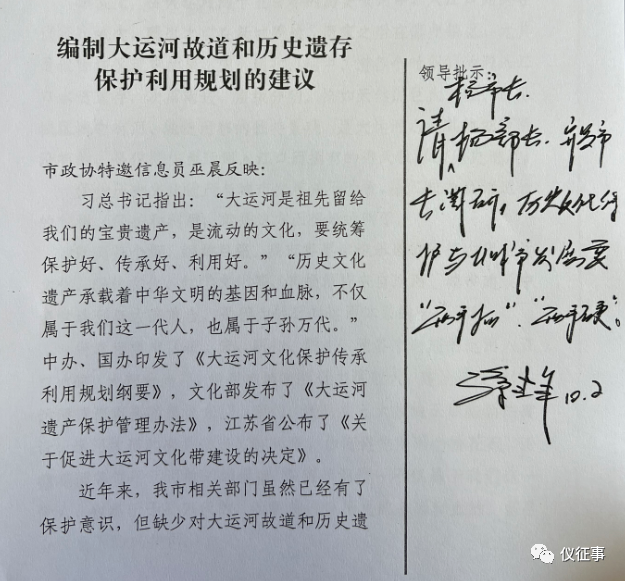 编制大运河故道和历史遗存
保护利用规划的建议
市政协特邀信息员巫晨反映：
习总书记指出：“大运河是祖先留给
我们的宝贵遗产，是流动的文化，要统筹
保护好、传承好、利用好。”“历史文化
遗产承载着中华文明的基因和血脉，不仅
属于我们这一代人，也属于子孙万代。”
中办、国办印发了《大运河文化保护传承
利用规划纲要》，文化部发布了《大运河
遗产保护管理办法》，江苏省公布了《关
于促进大运河文化带建设的决定》。
近年来，我市相关部门虽然已经有了
保护意识，但缺少对大运河故道和历史遗
领导批示：
部长.
请 部长. 市
长 研，历史文化
护与 市发展要
“两手抓”.“两手硬”。
10.2
仪征事